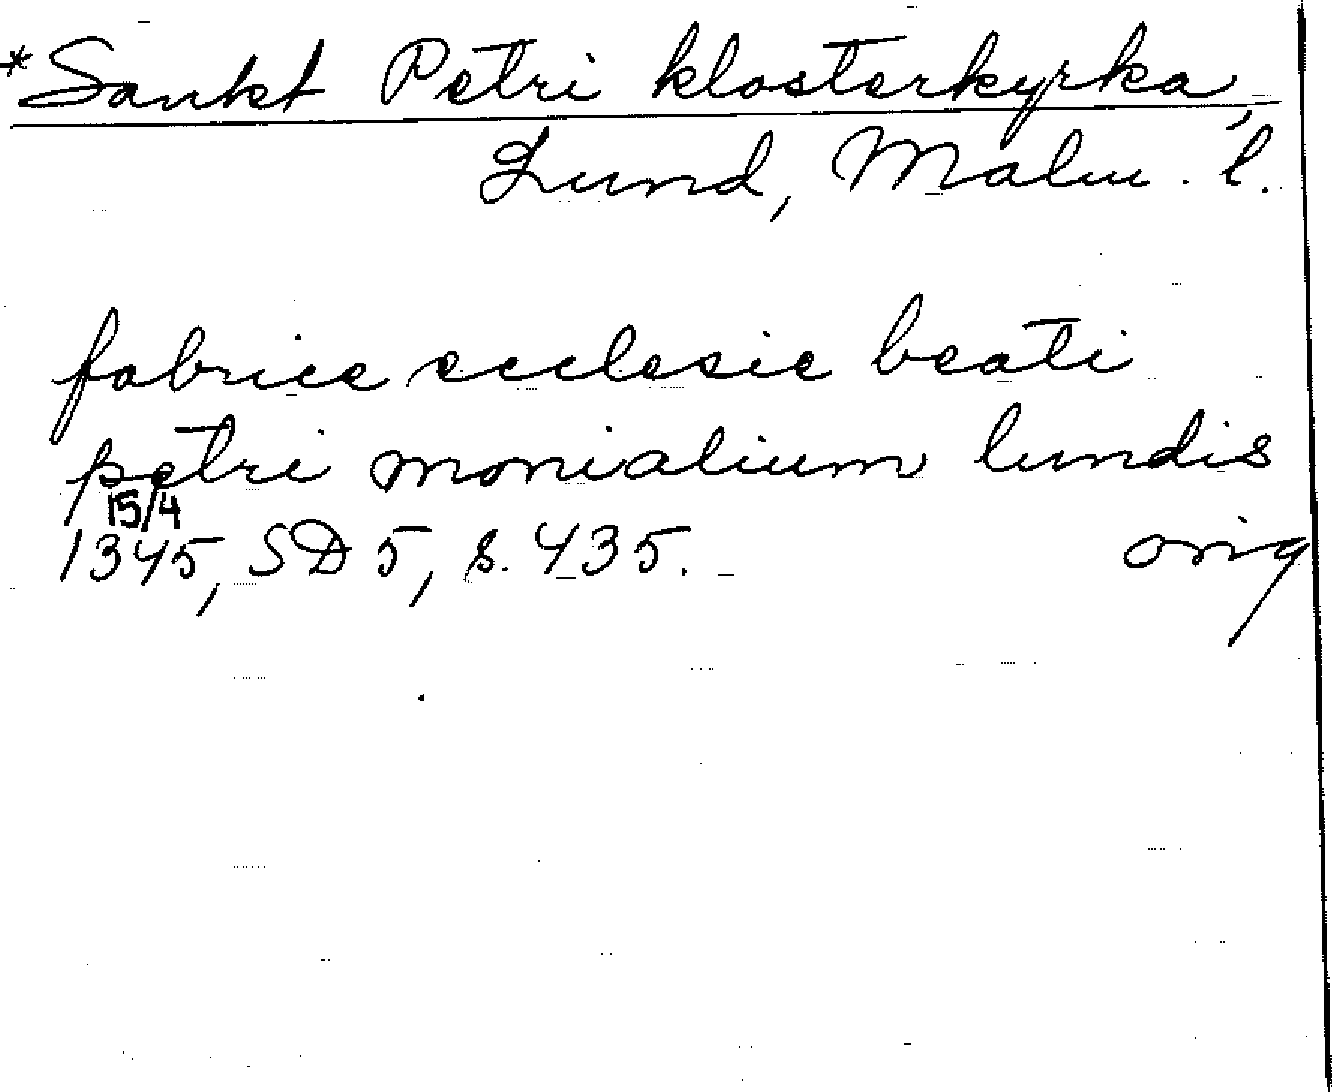 *Sankt Petri klosterkyrka,
Lund, Malm. l.
fabrice ecclesie beati
petri monialium lundis
15/4
1345, SD 5, s. 435. orig